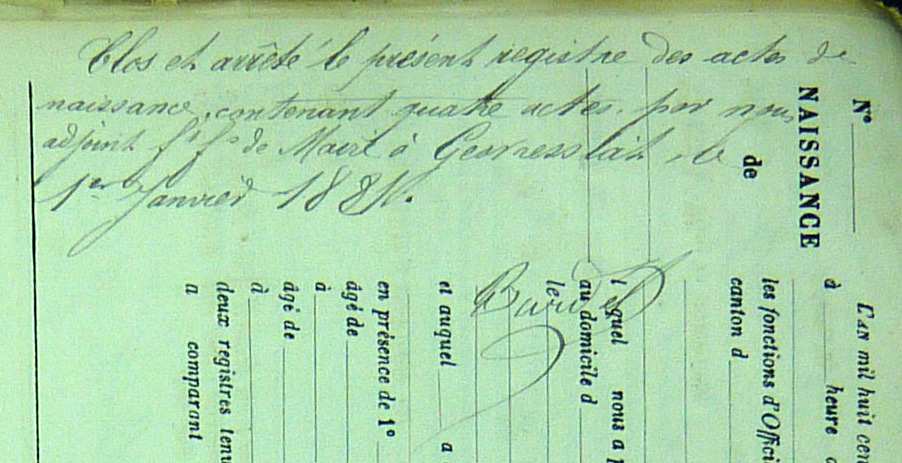 Clos et arrêté le présent registre des actes de
naissance, contenant quatre actes par nous
adjoint f^t f^s de Maire à le
1er Janvier 1881.
Bardel
N°
NAISSANCE
de
L'AN mil huit cen
à heure
les fonctions d'Offici
canton d
l quel nous a p
au domicile d
le
et auquel a
en présence de 1°
âgé de
à
âgé de
à
deux registres tenu
a comparant